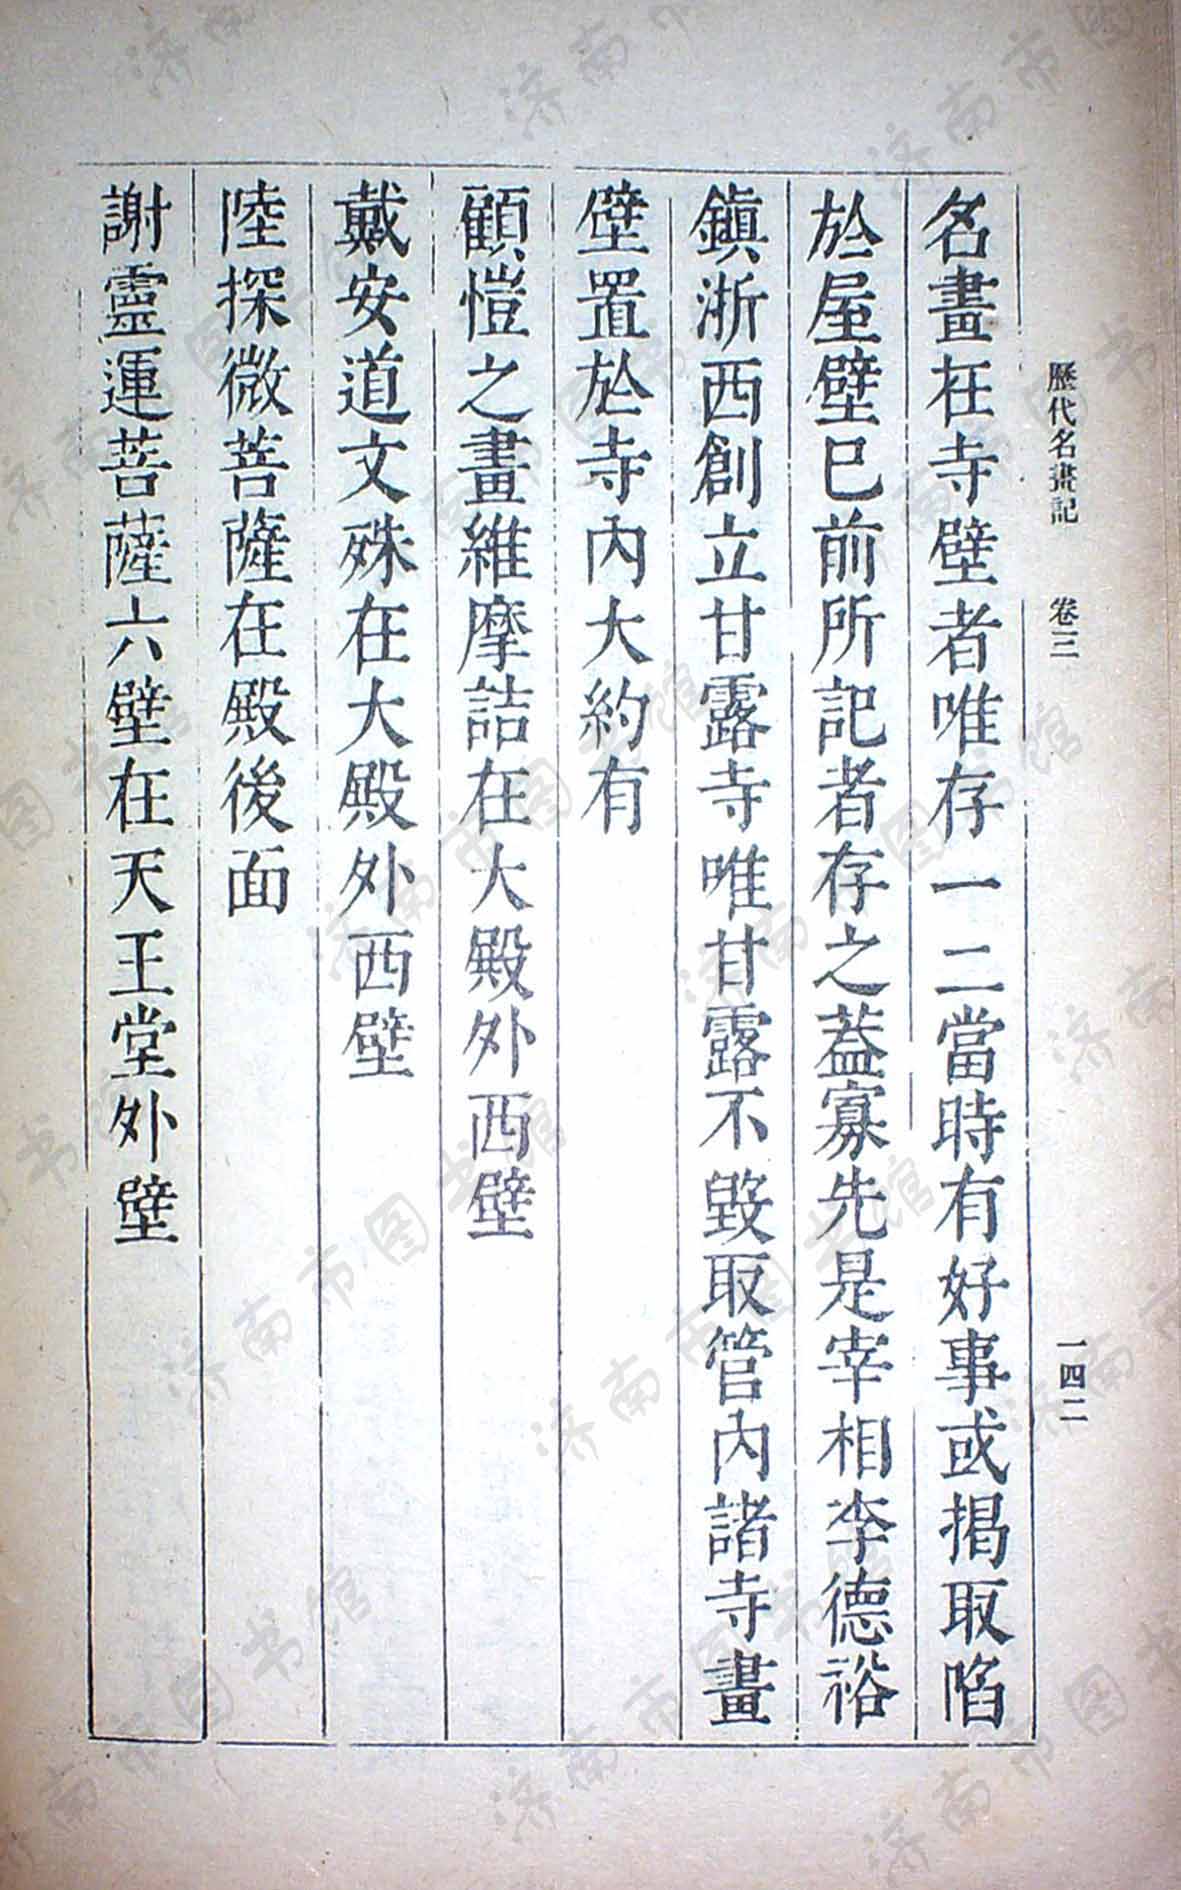 歷代名畫記 卷三 一四二
名畫在寺壁者唯存一二當時有好事或揭取陷
於屋壁已前所記者存之蓋寡先是宰相李德裕
鎮浙西創立甘露寺唯甘露不毀取管內諸寺畫
壁置於寺內大約有
顧愷之畫維摩詰在大殿外西壁
戴安道文殊在大殿外西壁
陸探微菩薩在殿後面
謝靈運菩薩六壁在天王堂外壁
济南市图书馆